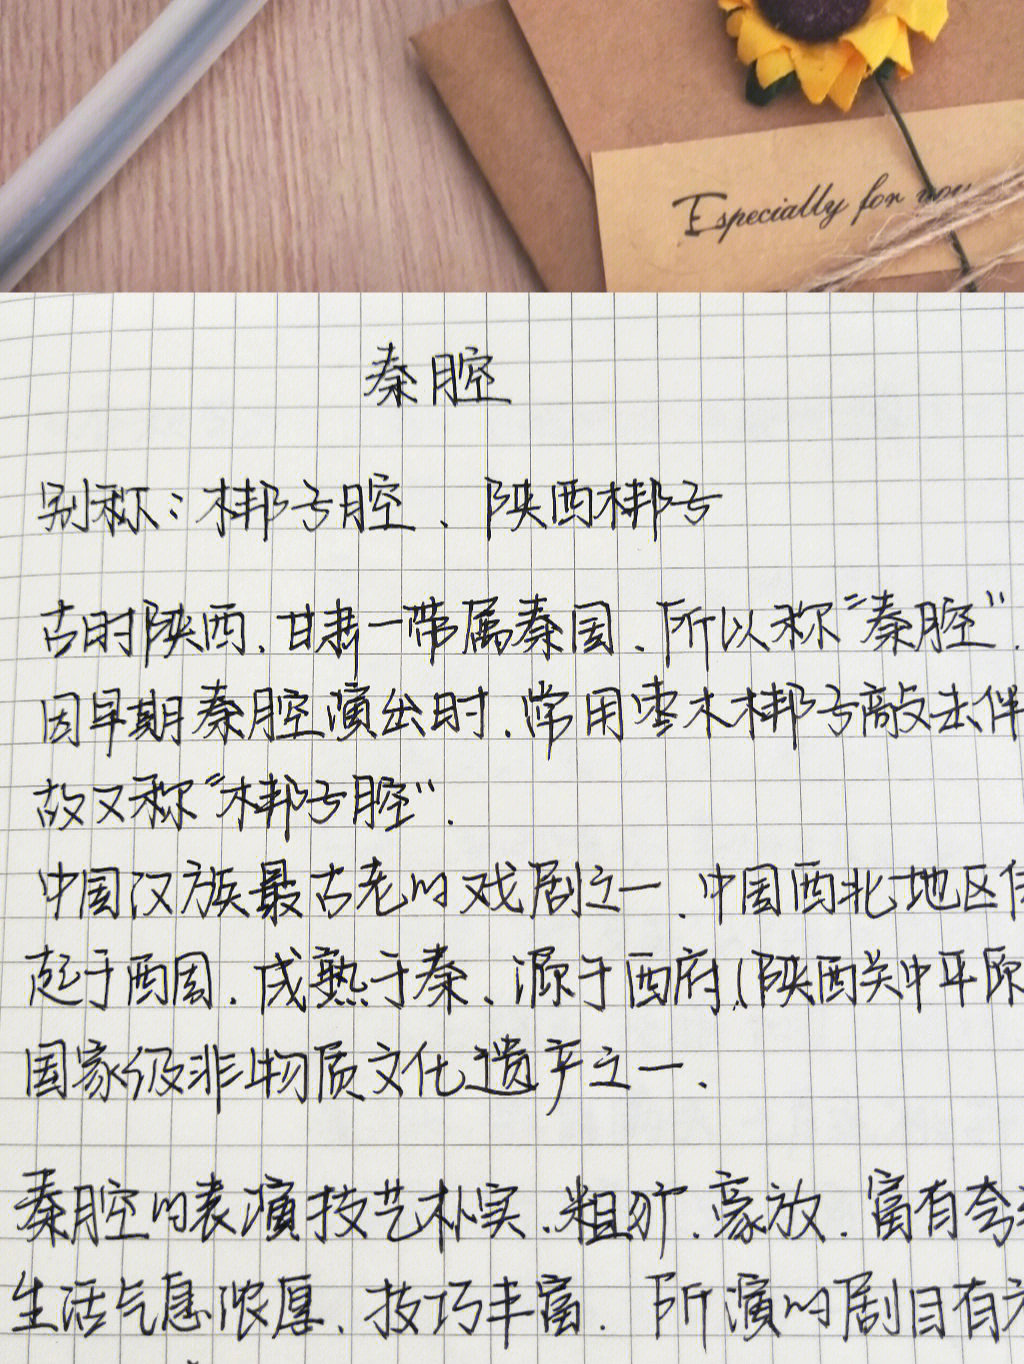 Especially for you
秦腔
别称:梆子腔、陕西梆子
古时陕西、甘肃一带属秦国、所以称“秦腔”.
因早期秦腔演出时.常用枣木梆子敲击伴
故又称“梆子腔”.
中国汉族最古老的戏剧之一.中国西北地区传
起于西周.成熟于秦、源于西府(陕西关中平原
国家级非物质文化遗产之一.
秦腔的表演技艺朴实、粗犷、豪放.富有夸
生活气息浓厚、技巧丰富.所演的剧目有